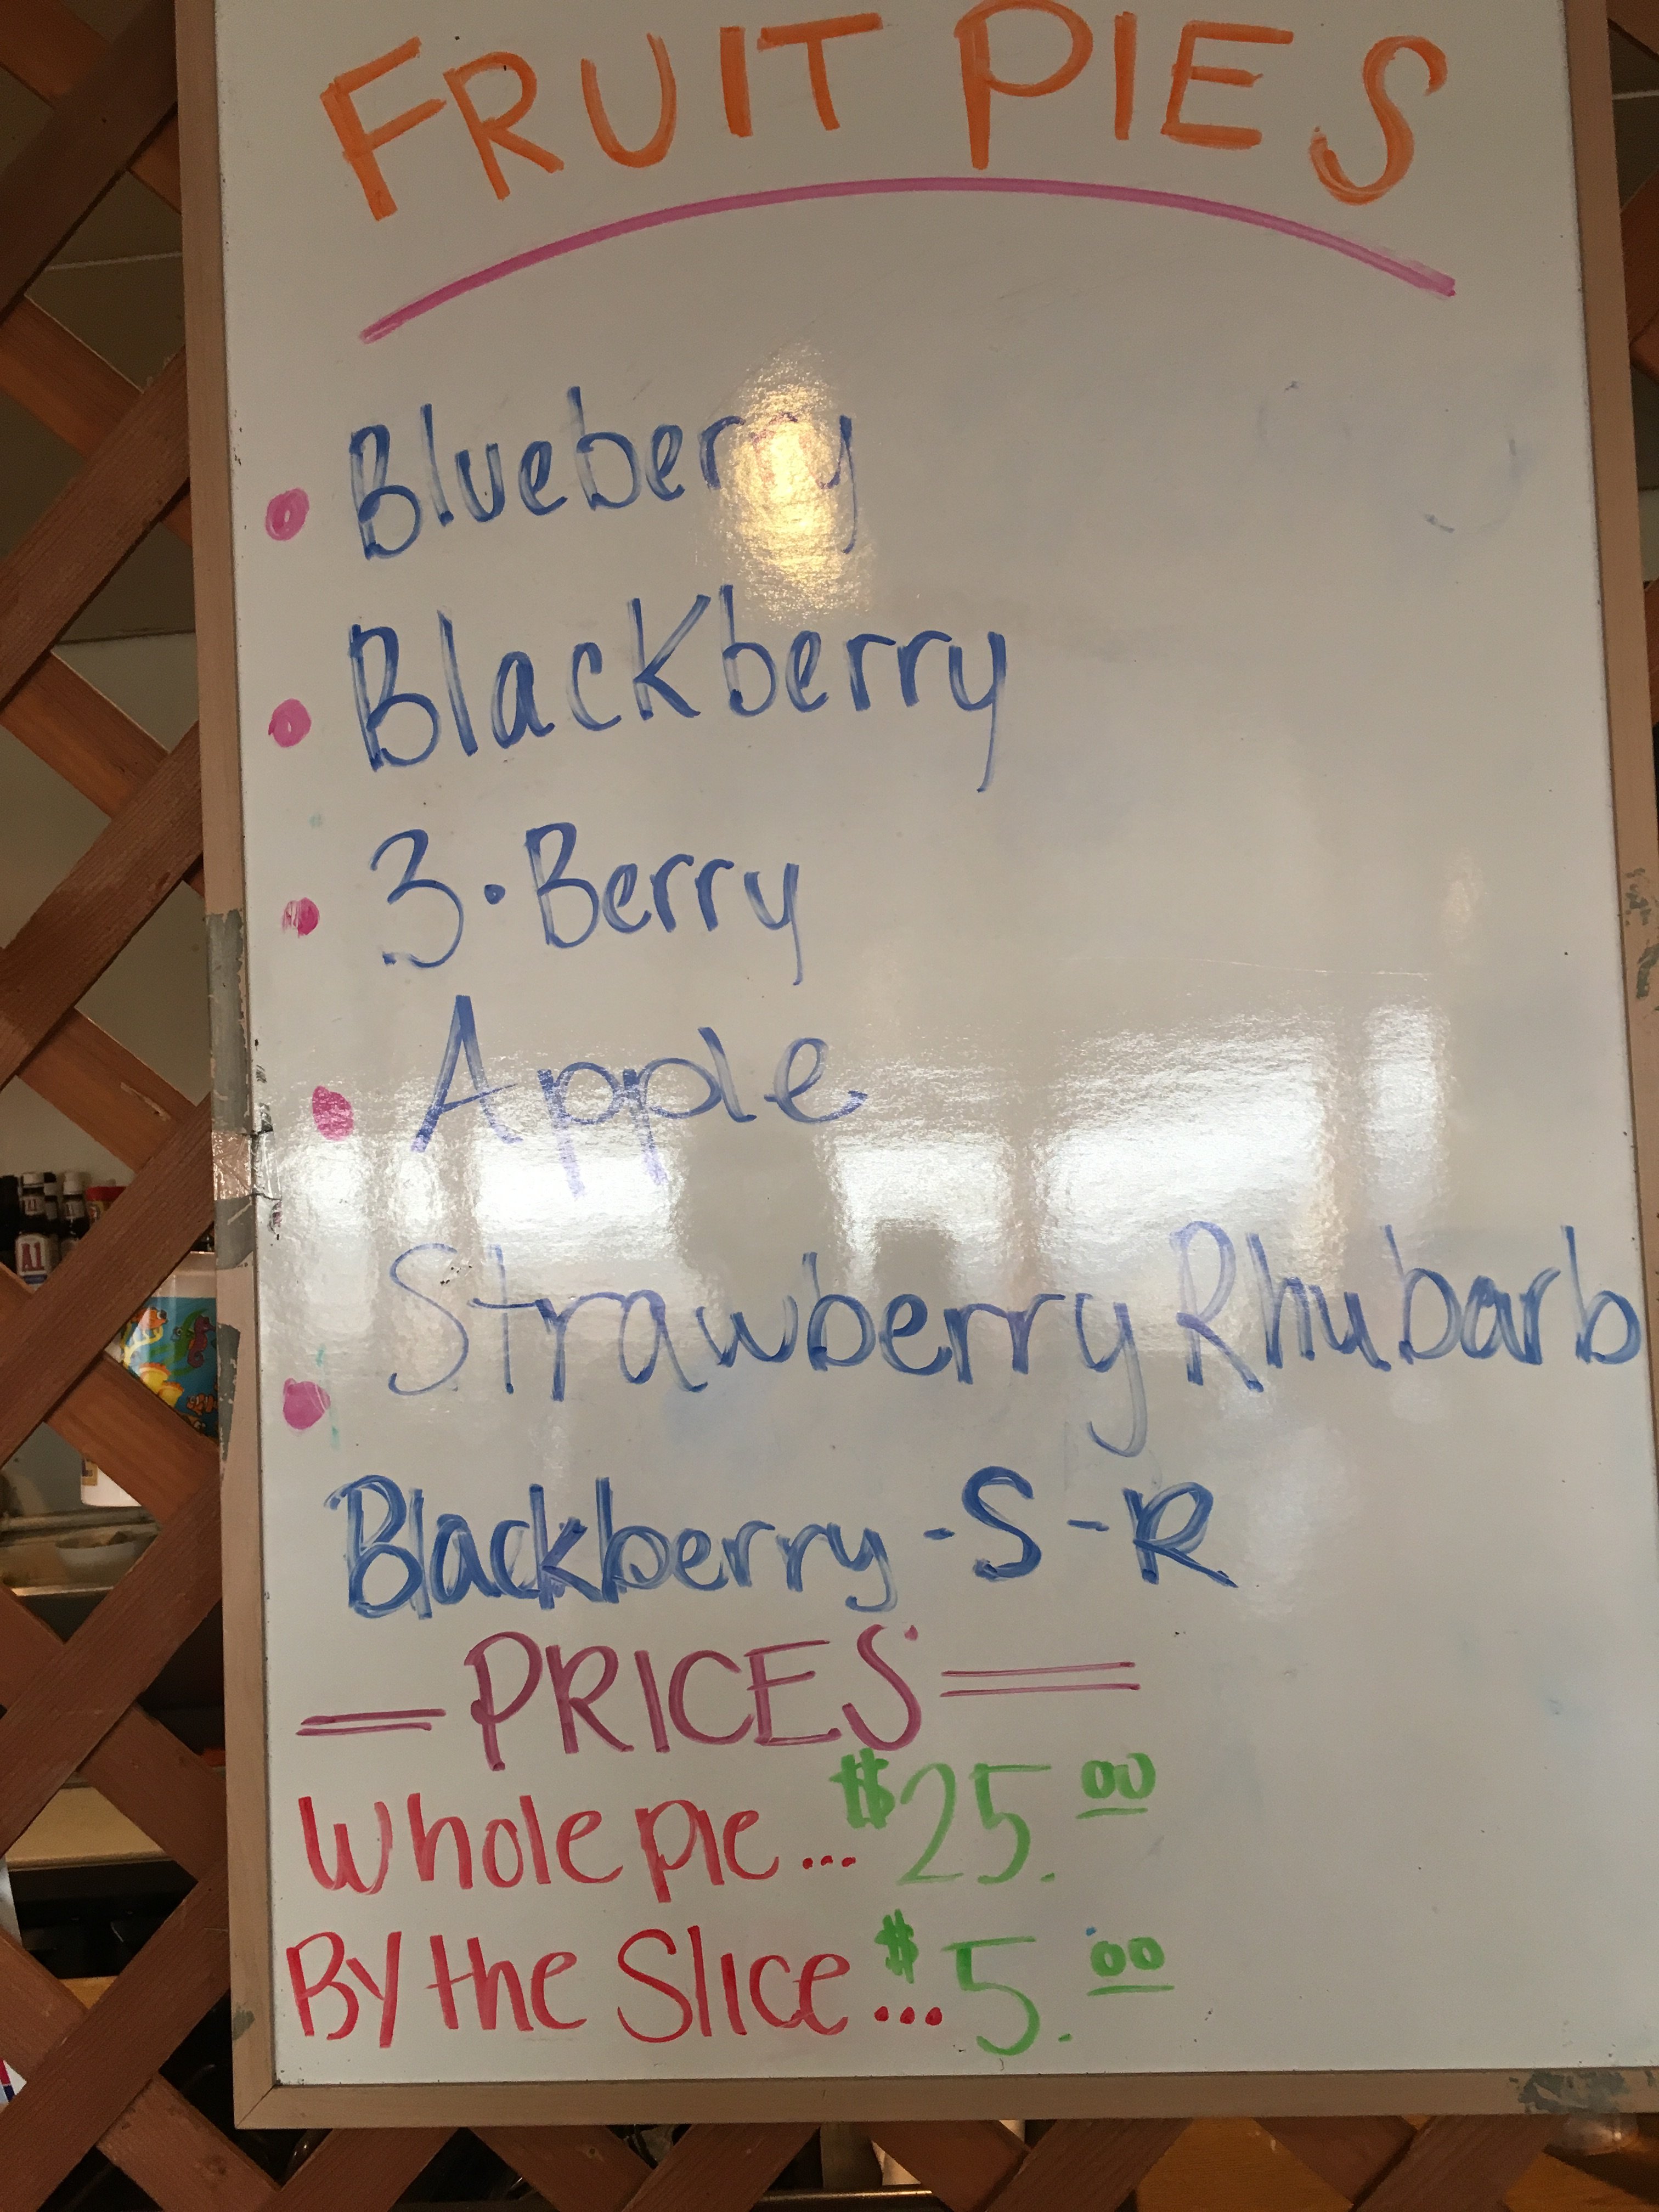 FRUIT PIES
• Blueberry
• Blackberry
• 3·Berry
• Apple
• Strawberry Rhubarb
Blackberry-S-R
=PRICES=
Whole pie...$25.00
By the Slice...$5.00
A1